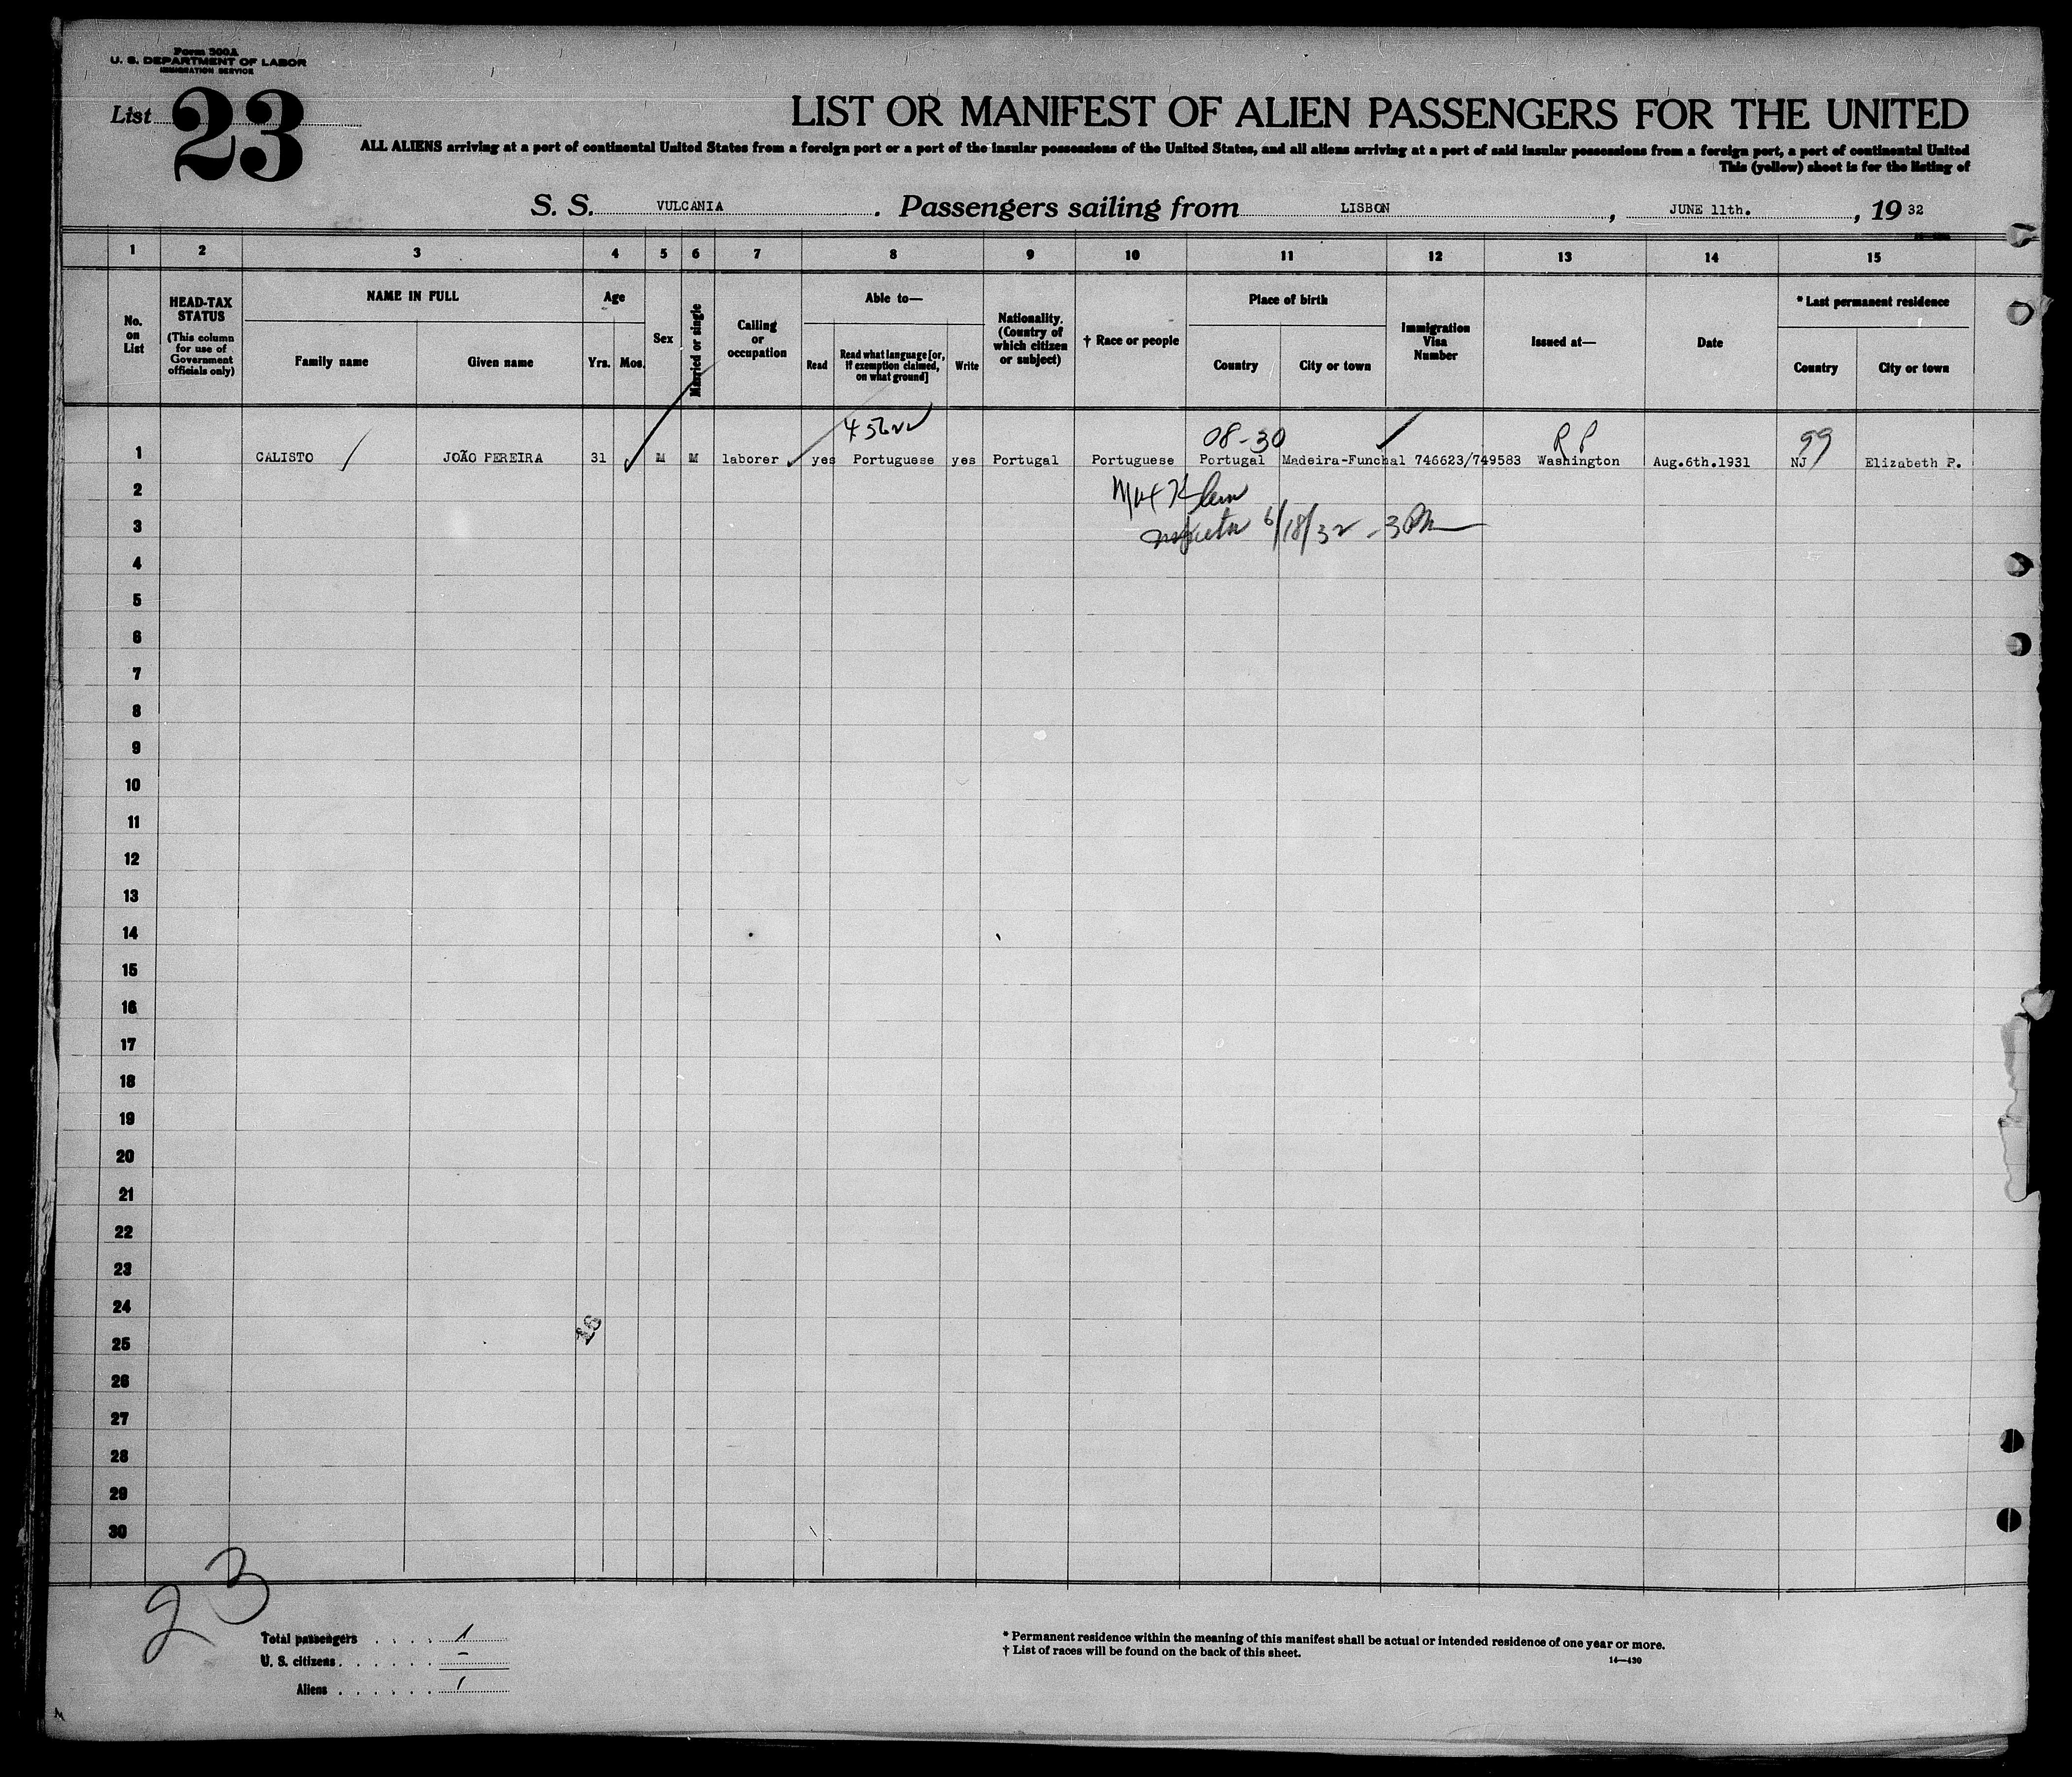 Form 500A
U. S. DEPARTMENT OF LABOR
IMMIGRATION SERVICE
List 23
LIST OR MANIFEST OF ALIEN PASSENGERS FOR THE UNITED
ALL ALIENS arriving at a port of continental United States from a foreign port or a port of the insular possessions of the United States, and all aliens arriving at a port of said insular possessions from a foreign port, a port of continental United
This (yellow) sheet is for the listing of
S. S. VULCANIA. Passengers sailing from LISBON, JUNE 11th., 19 32
1 2 3 4 5 6 7 8 9 10 11 12 13 14 15
No. on List
HEAD-TAX STATUS
(This column for use of Government officials only)
NAME IN FULL
Family name
Given name
Age
Yrs.
Mos.
Sex
Married or single
Calling or occupation
Able to—
Read
Read what language [or, if exemption claimed, on what ground]
Write
Nationality. (Country of which citizen or subject)
† Race or people
Place of birth
Country
City or town
Immigration Visa Number
Issued at—
Date
* Last permanent residence
Country
City or town
08-30 R P 99
1 CALISTO JOÃO PEREIRA 31 M M laborer yes Portuguese yes Portugal Portuguese Portugal Madeira-Funchal 746623/749583 Washington Aug.6th.1931 NJ Elizabeth P.
2
3 6/18/32 - 3
4
5
6
7
8
9
10
11
12
13
14
15
16
17
18
19
20
21
22
23
24
25
26
27
28
29
30
23
Total passengers . . . . 1
U. S. citizens . . . . . . –
Aliens . . . . . . 1
* Permanent residence within the meaning of this manifest shall be actual or intended residence of one year or more.
† List of races will be found on the back of this sheet.
14—430